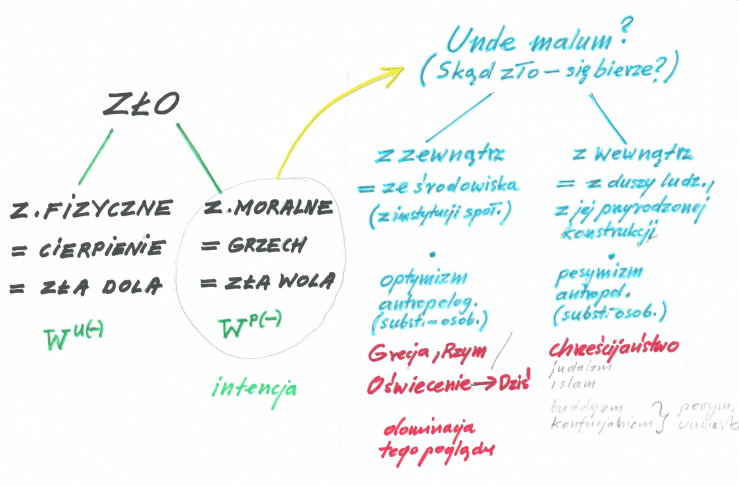 ZŁO
Z. FIZYCZNE
= CIERPIENIE
= ZŁA DOLA
W^U(-)
Z. MORALNE
= GRZECH
= ZŁA WOLA
W^P(-)
intencja
Unde malum?
(Skąd zło – się bierze?)
z zewnątrz
= ze środowiska
(z instytucji społ.)
optymizm
antropolog.
(subst.-osob.)
Grecja, Rzym
Oświecenie → Dziś
dominacja
tego poglądu
z wewnątrz
= z duszy ludz.,
z jej przyrodzonej
konstrukcji
pesymizm
antropol.
(subst.-osob.)
chrześcijaństwo
judaizm
islam
buddyzm
konfucjanizm } pesym.